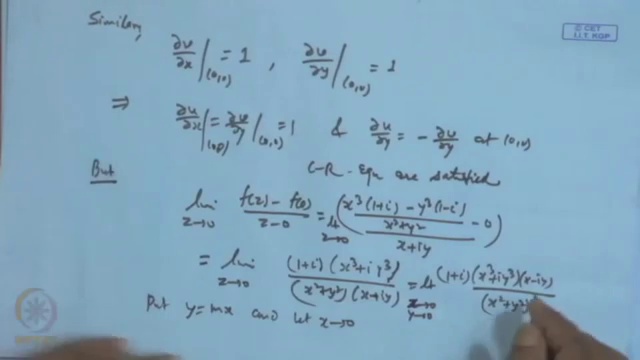 Similarly
© CET
I.I.T. KGP
∂u/∂x |(0,0) = 1 , ∂v/∂y |(0,0) = 1
⇒ ∂u/∂x |(0,0) = ∂v/∂y |(0,0) = 1 & ∂u/∂y = - ∂v/∂y at (0,0)
C-R- Equ are satisfied
But
lim z→0 (f(z) - f(0))/(z-0) = lt z→0 ((x³(1+i) - y³(1-i))/(x²+y²) - 0)/(x+iy)
= lim z→0 (1+i)(x³+iy³)/((x²+y²)(x+iy)) = lt x→0 y→0 (1+i)(x³+iy³)(x-iy)/(x²+y²)
Put y=mx and let x→0